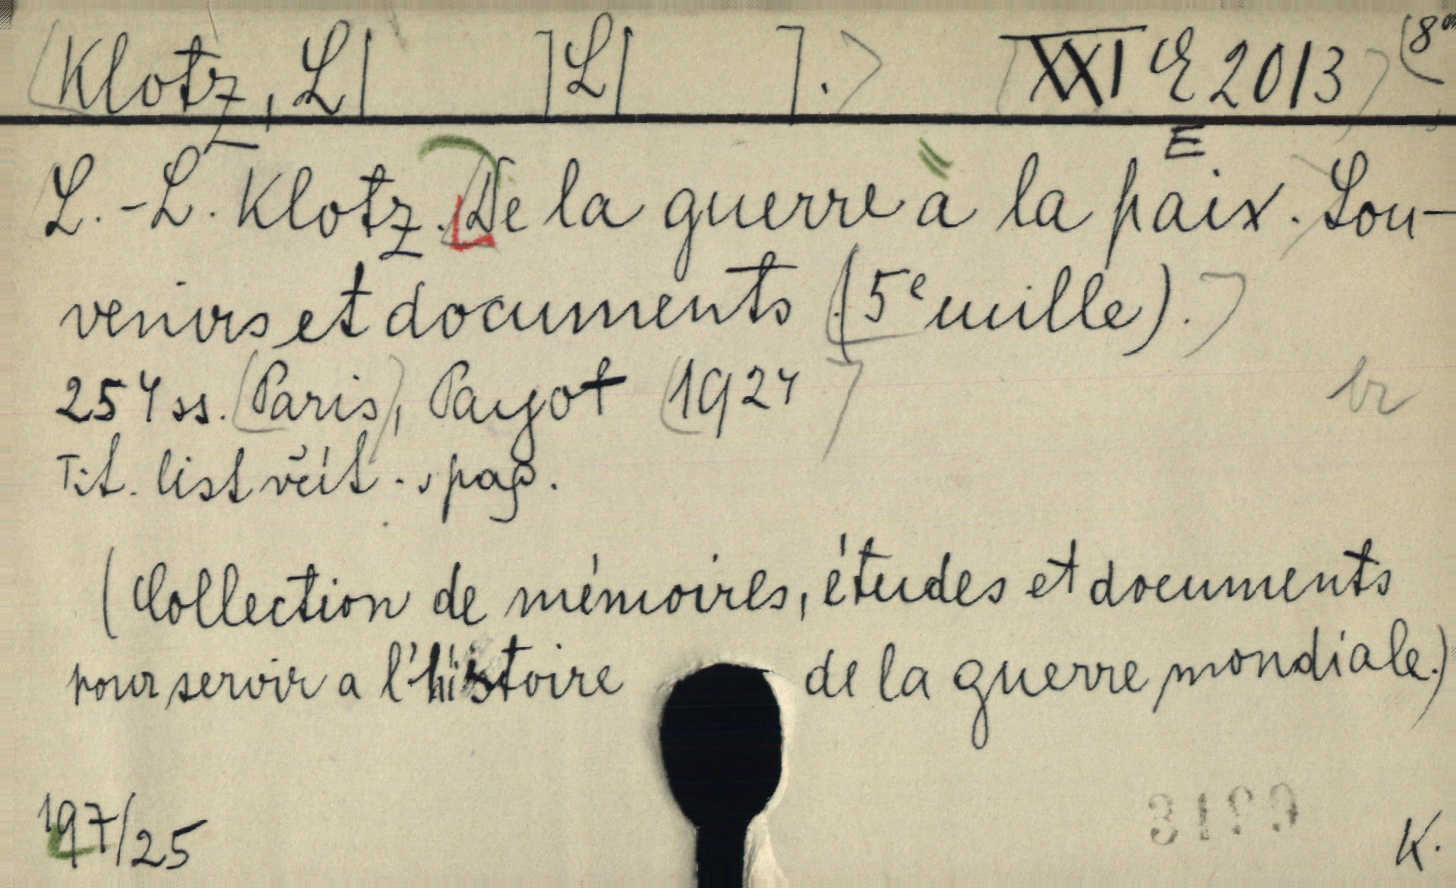 (Klotz, L[ ]L[ ].) XXI E 2013 (8°
E
L.-L. Klotz. De la guerre à la paix. Sou-
venirs et documents (5e mille).
254 ss. (Paris), Payot (1924)
br
Tit. list věit. · pag.
(Collection de mémoires, études et documents
pour servir a l'histoire de la guerre mondiale.)
197/25
K.